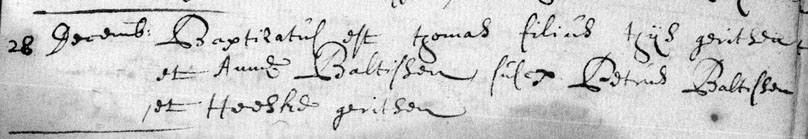 28 Decemb: Baptizatus est thomas filius thijs geritsen
et Annæ Baltissen susc: Petrus Baltissen
et Heeske geritsen